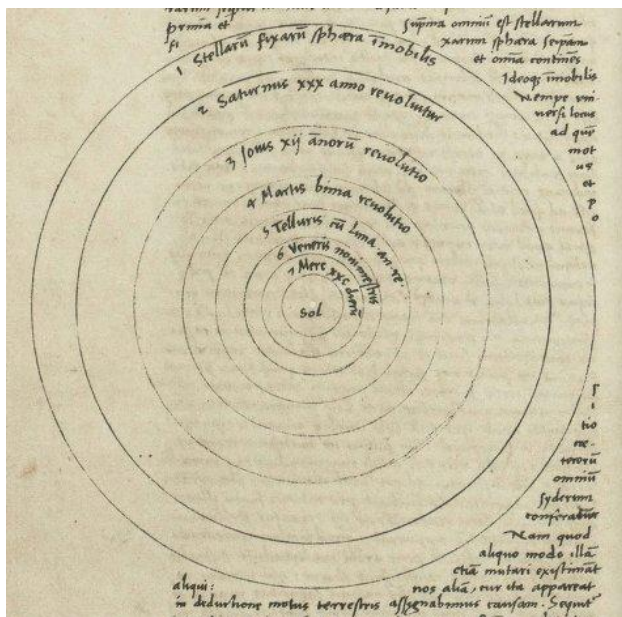 prima et
suprema omniũ est stellarum
fi
xarum sphæra seipam
et omia continẽs
Ideoqȝ ĩmobilis
Nempe uni
uersi locus
ad quẽ
mot
us
et
p
o
1 Stellarũ fixarũ sphæra ĩmobilis
2 Saturnus xxx anno reuoluitur
3 Iouis xij ãnorũ reuolutio
4 Martis bima reuolutio
5 Telluris cũ Luna an. re.
6 Veneris nonimestris
7 Merc xxc dierũ
Sol
s
i
tio
cæ-
terorũ
omniũ
syderum
conferatur
Nam quod
aliquo modo illã
etiã mutari existimãt
aliqui:
nos aliã, cur ita appareat
in deductione motus terrestris assignabimus causam. Sequitʳ